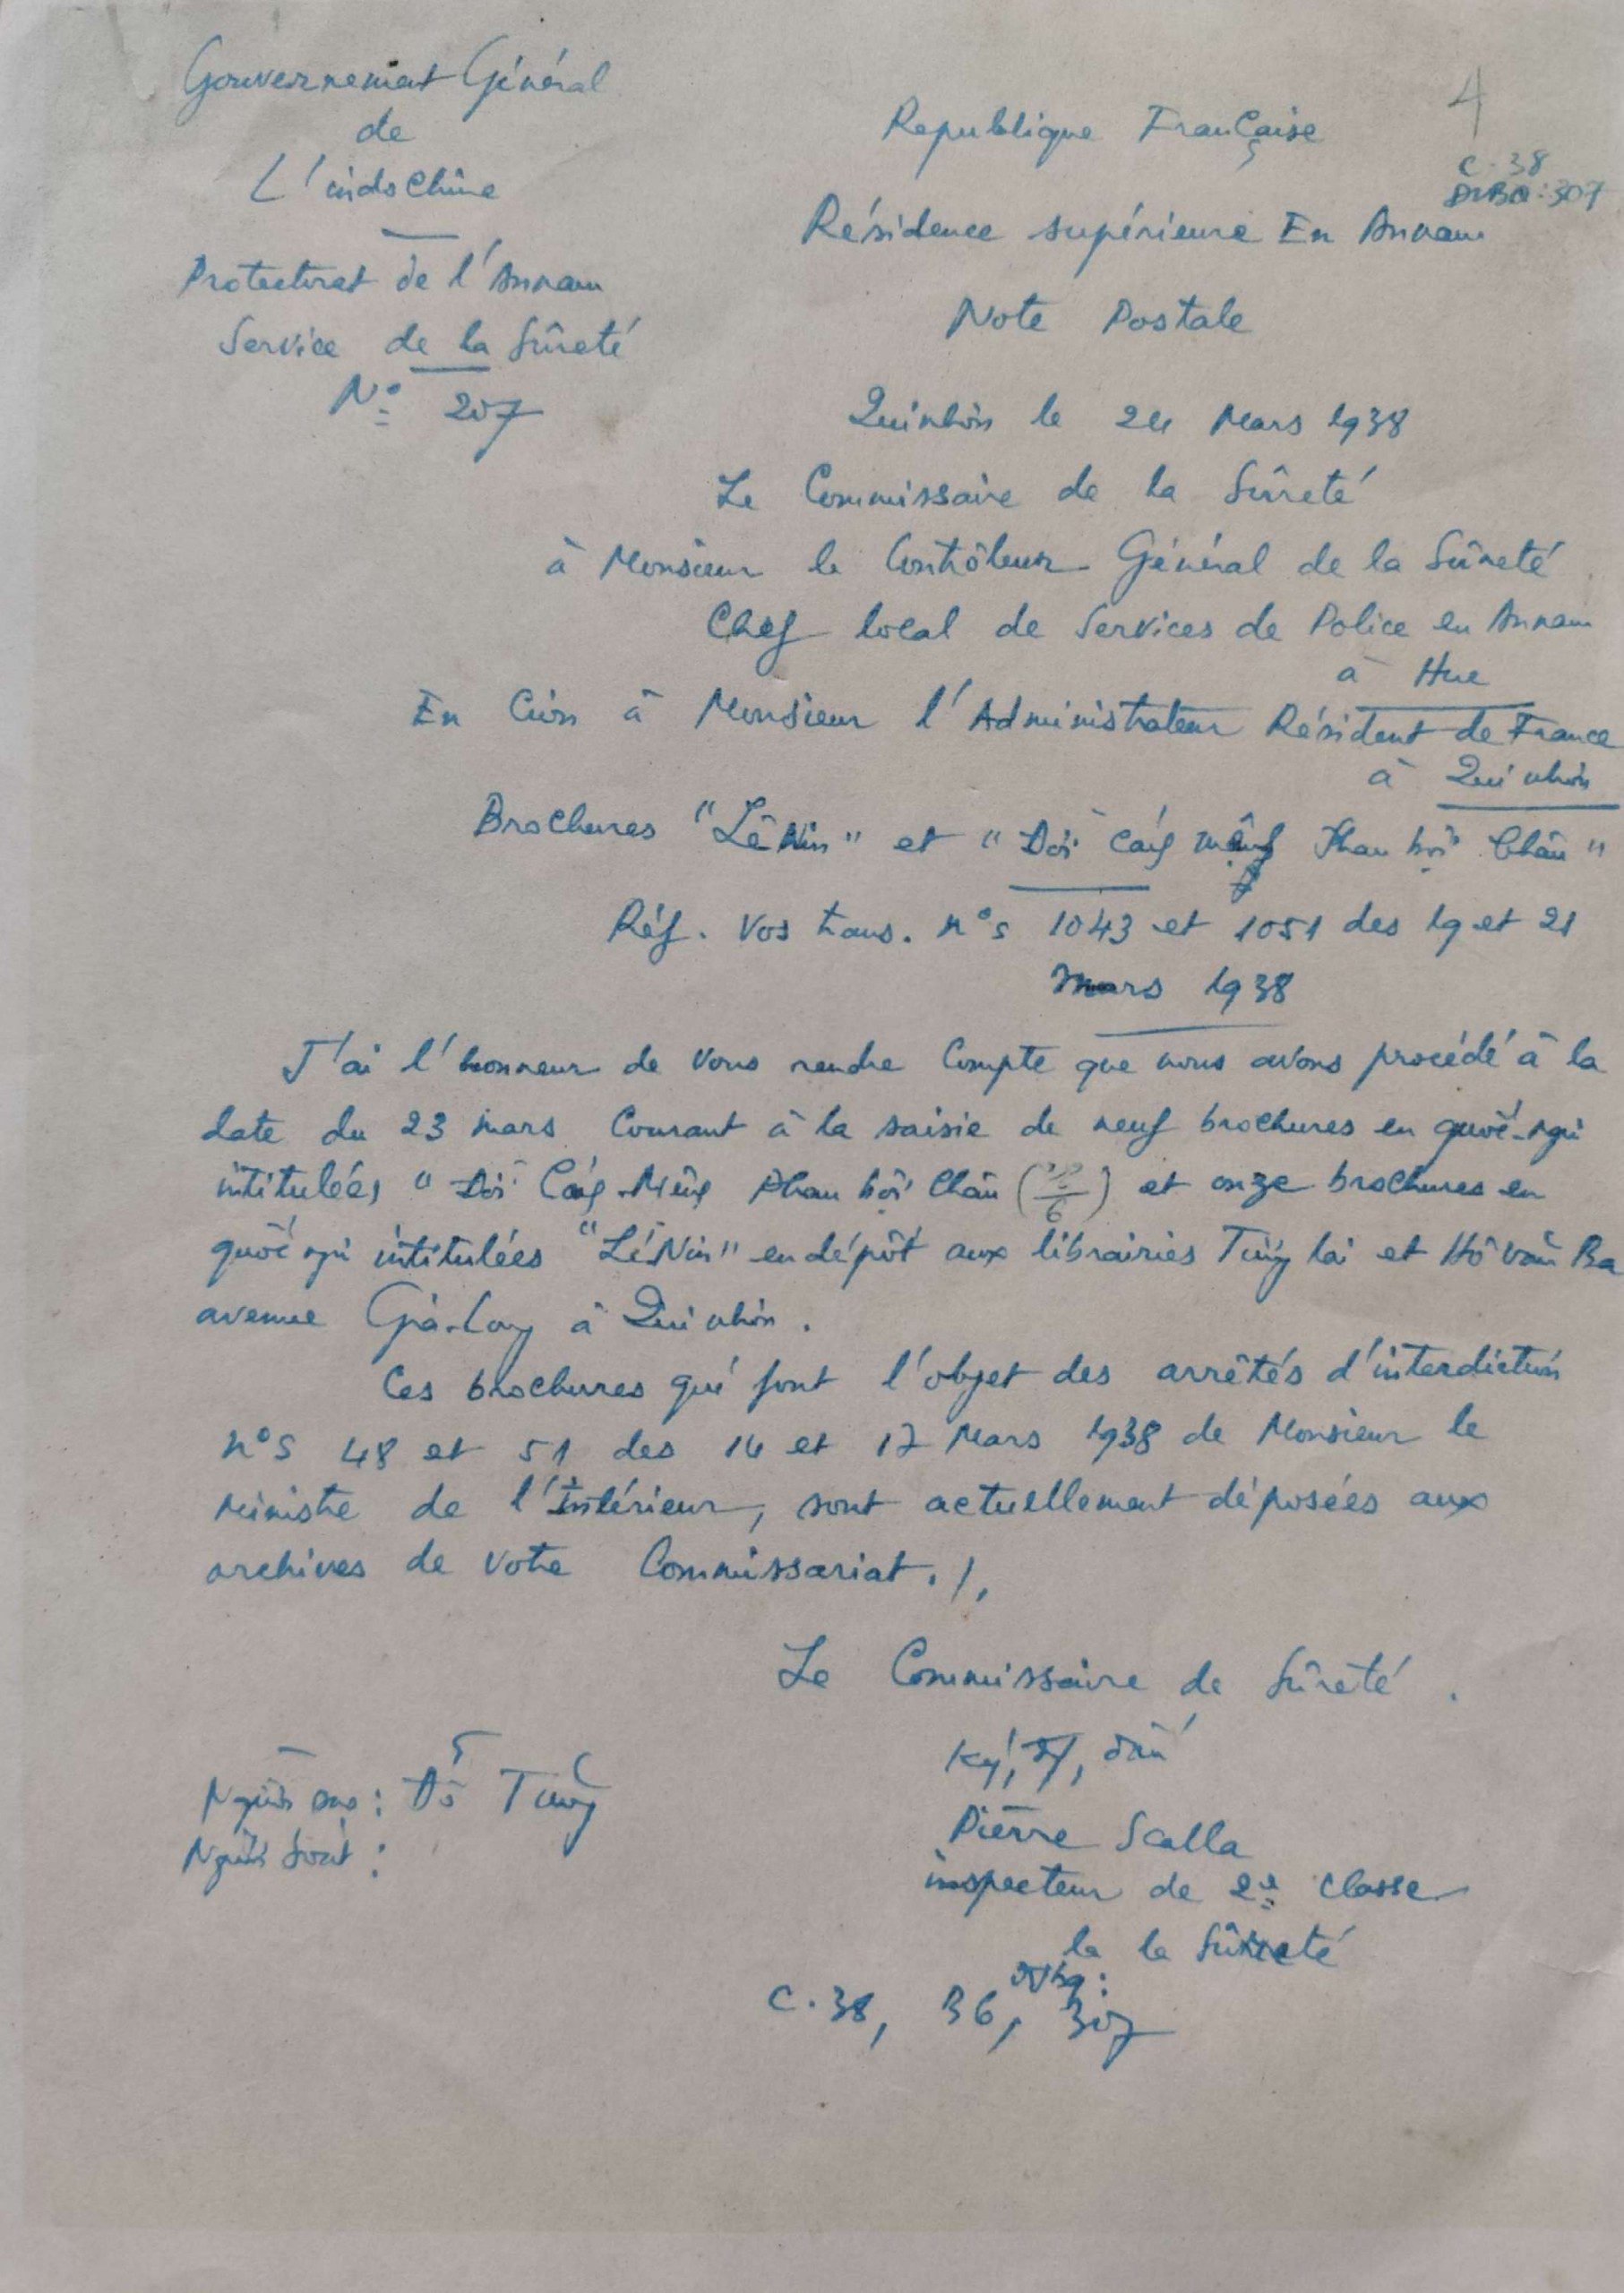 Gouvernement Général
de
L'indochine
Protectorat de l'Annam
Service de la Sûreté
N° 207
4
C.38
307
Republique Française
Résidence supérieure En Annam
Note Postale
Quinhơn le 24 Mars 1938
Le Commissaire de la Sûreté
à Monsieur le Contrôleur Général de la Sûreté
Chef local de Services de Police en Annam
à Hue
En à Monsieur l'Administrateur Résident de France
à Quinhơn
Brochures "Lê Nin" et " Đời Cág mệng Phan bội Châu "
Réf. Vos trans. n°s 1043 et 1051 des 19 et 21
mars 1938
J'ai l'honneur de vous rendre Compte que nous avons procédé à la
date du 23 mars Courant à la saisie de neuf brochures en quốc-ngữ
intitulées " Đời Cág-Mệng Phan bội Châu et onze brochures en
quốc ngữ intitulées "LéNin" en dépôt aux librairies Tùng lai et Hồ văn Ba
avenue Gia-Long à Quinhơn.
Ces brochures qui font l'objet des arrêtés d'interdiction
n°s 48 et 51 des 14 et 17 Mars 1938 de Monsieur le
Ministre de l'Intérieur, sont actuellement déposées aux
archives de votre Commissariat./.
Le Commissaire de Sûreté.
Ký, dấu
Pierre Scalla
inspecteur de 2e classe
la la Sûreté
C.38, 36, 307
Người sao: Đỗ Tùng
Người soát: